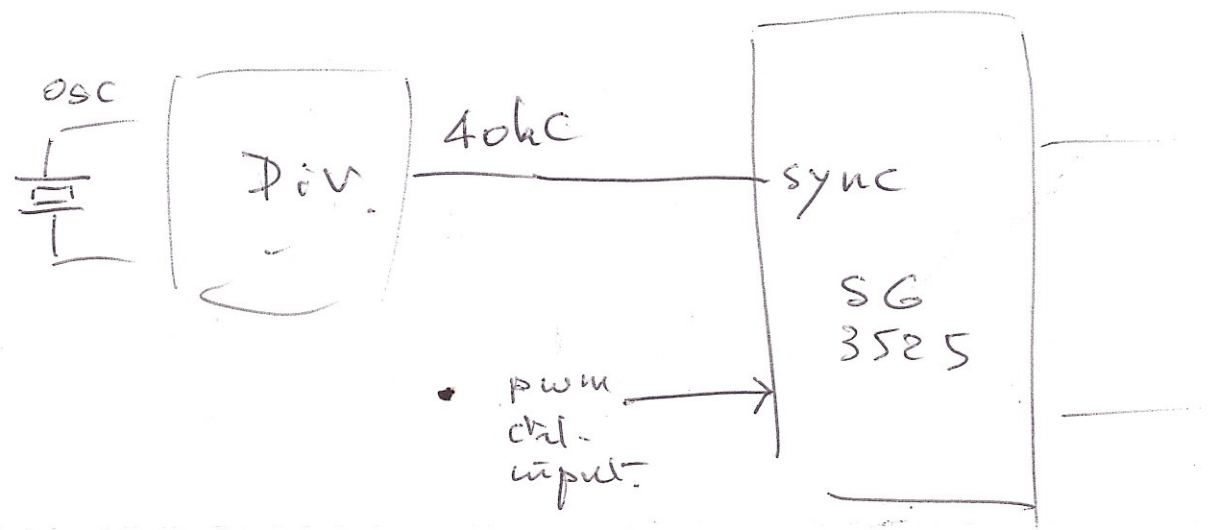 osc
Div.
40kC
sync
SG
3525
pwm
ctrl.
input.